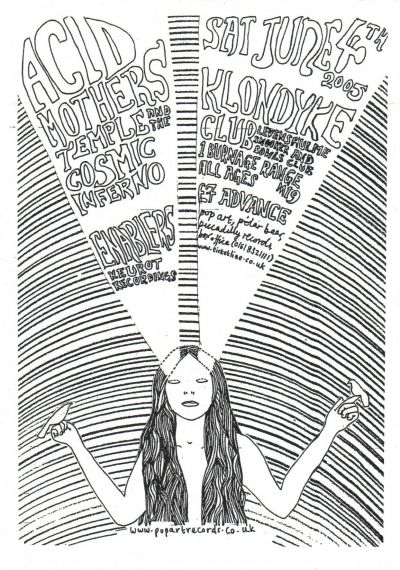 ACID
MOTHERS
TEMPLE AND THE
COSMIC
INFERNO
ENABLERS
NEUROT
RECORDINGS
SAT JUNE 4TH
2005
KLONDYKE
CLUB LEVENSHULME
SNOOKER AND
BOWLS CLUB
1 BURNAGE RANGE
ALL AGES M19
£7 ADVANCE
pop art, polar bear,
piccadilly records
box office (0161 832 1111)
www.ticketline.co.uk
www.popartrecords.co.uk